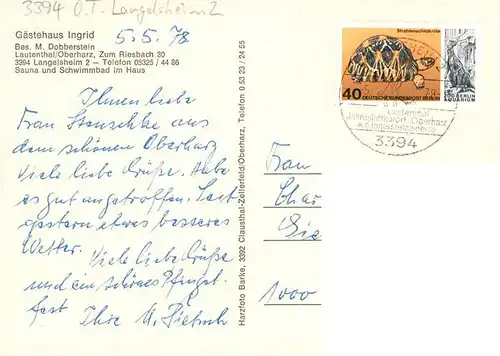 3394 O.T. Langelsheim 2
Gästehaus Ingrid
Bes. M. Dobberstein
Lautenthal/Oberharz, Zum Riesbach 30
3394 Langelsheim 2 – Telefon 05325 / 44 86
Sauna und Schwimmbad im Haus
5.5.78
Ihnen liebe
Frau Stanschke aus
dem schönen Oberharz
viele liebe Grüße. Habe
es gut angetroffen. Seit
gestern etwas besseres
Wetter. Viele liebe Grüße
und ein schönes Pfingst-
fest Ihre M. Pietsch
Harzfoto Barke, 3392 Clausthal-Zellerfeld/Oberharz, Telefon 0 53 23 / 24 55
Strahlenschildkröte
40 DEUTSCHE BUNDESPOST BERLIN
ZOO BERLIN
AQUARIUM
Lautenthal
Jahresluftkurort /Oberharz
3394
Frau
Char
Gie
1000